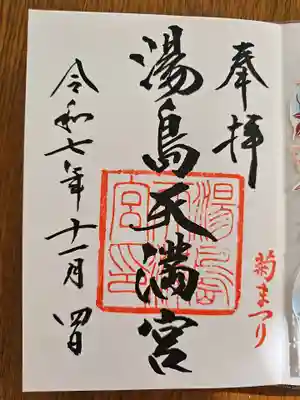 奉拝
菊まつり
湯島天満宮
湯島天満宮印
令和七年十一月四日